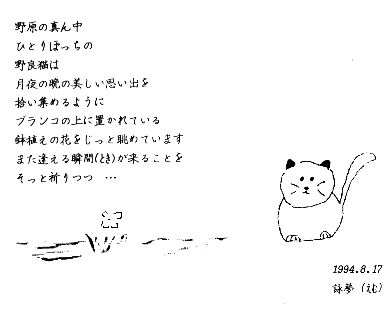 野原の真ん中
ひとりぼっちの
野良猫は
月夜の晩の美しい思い出を
拾い集めるように
ブランコの上に置かれている
鉢植えの花をじっと眺めています
また逢える瞬間(とき)が来ることを
そっと祈りつつ …
1994.8.17
詠夢 (えむ)